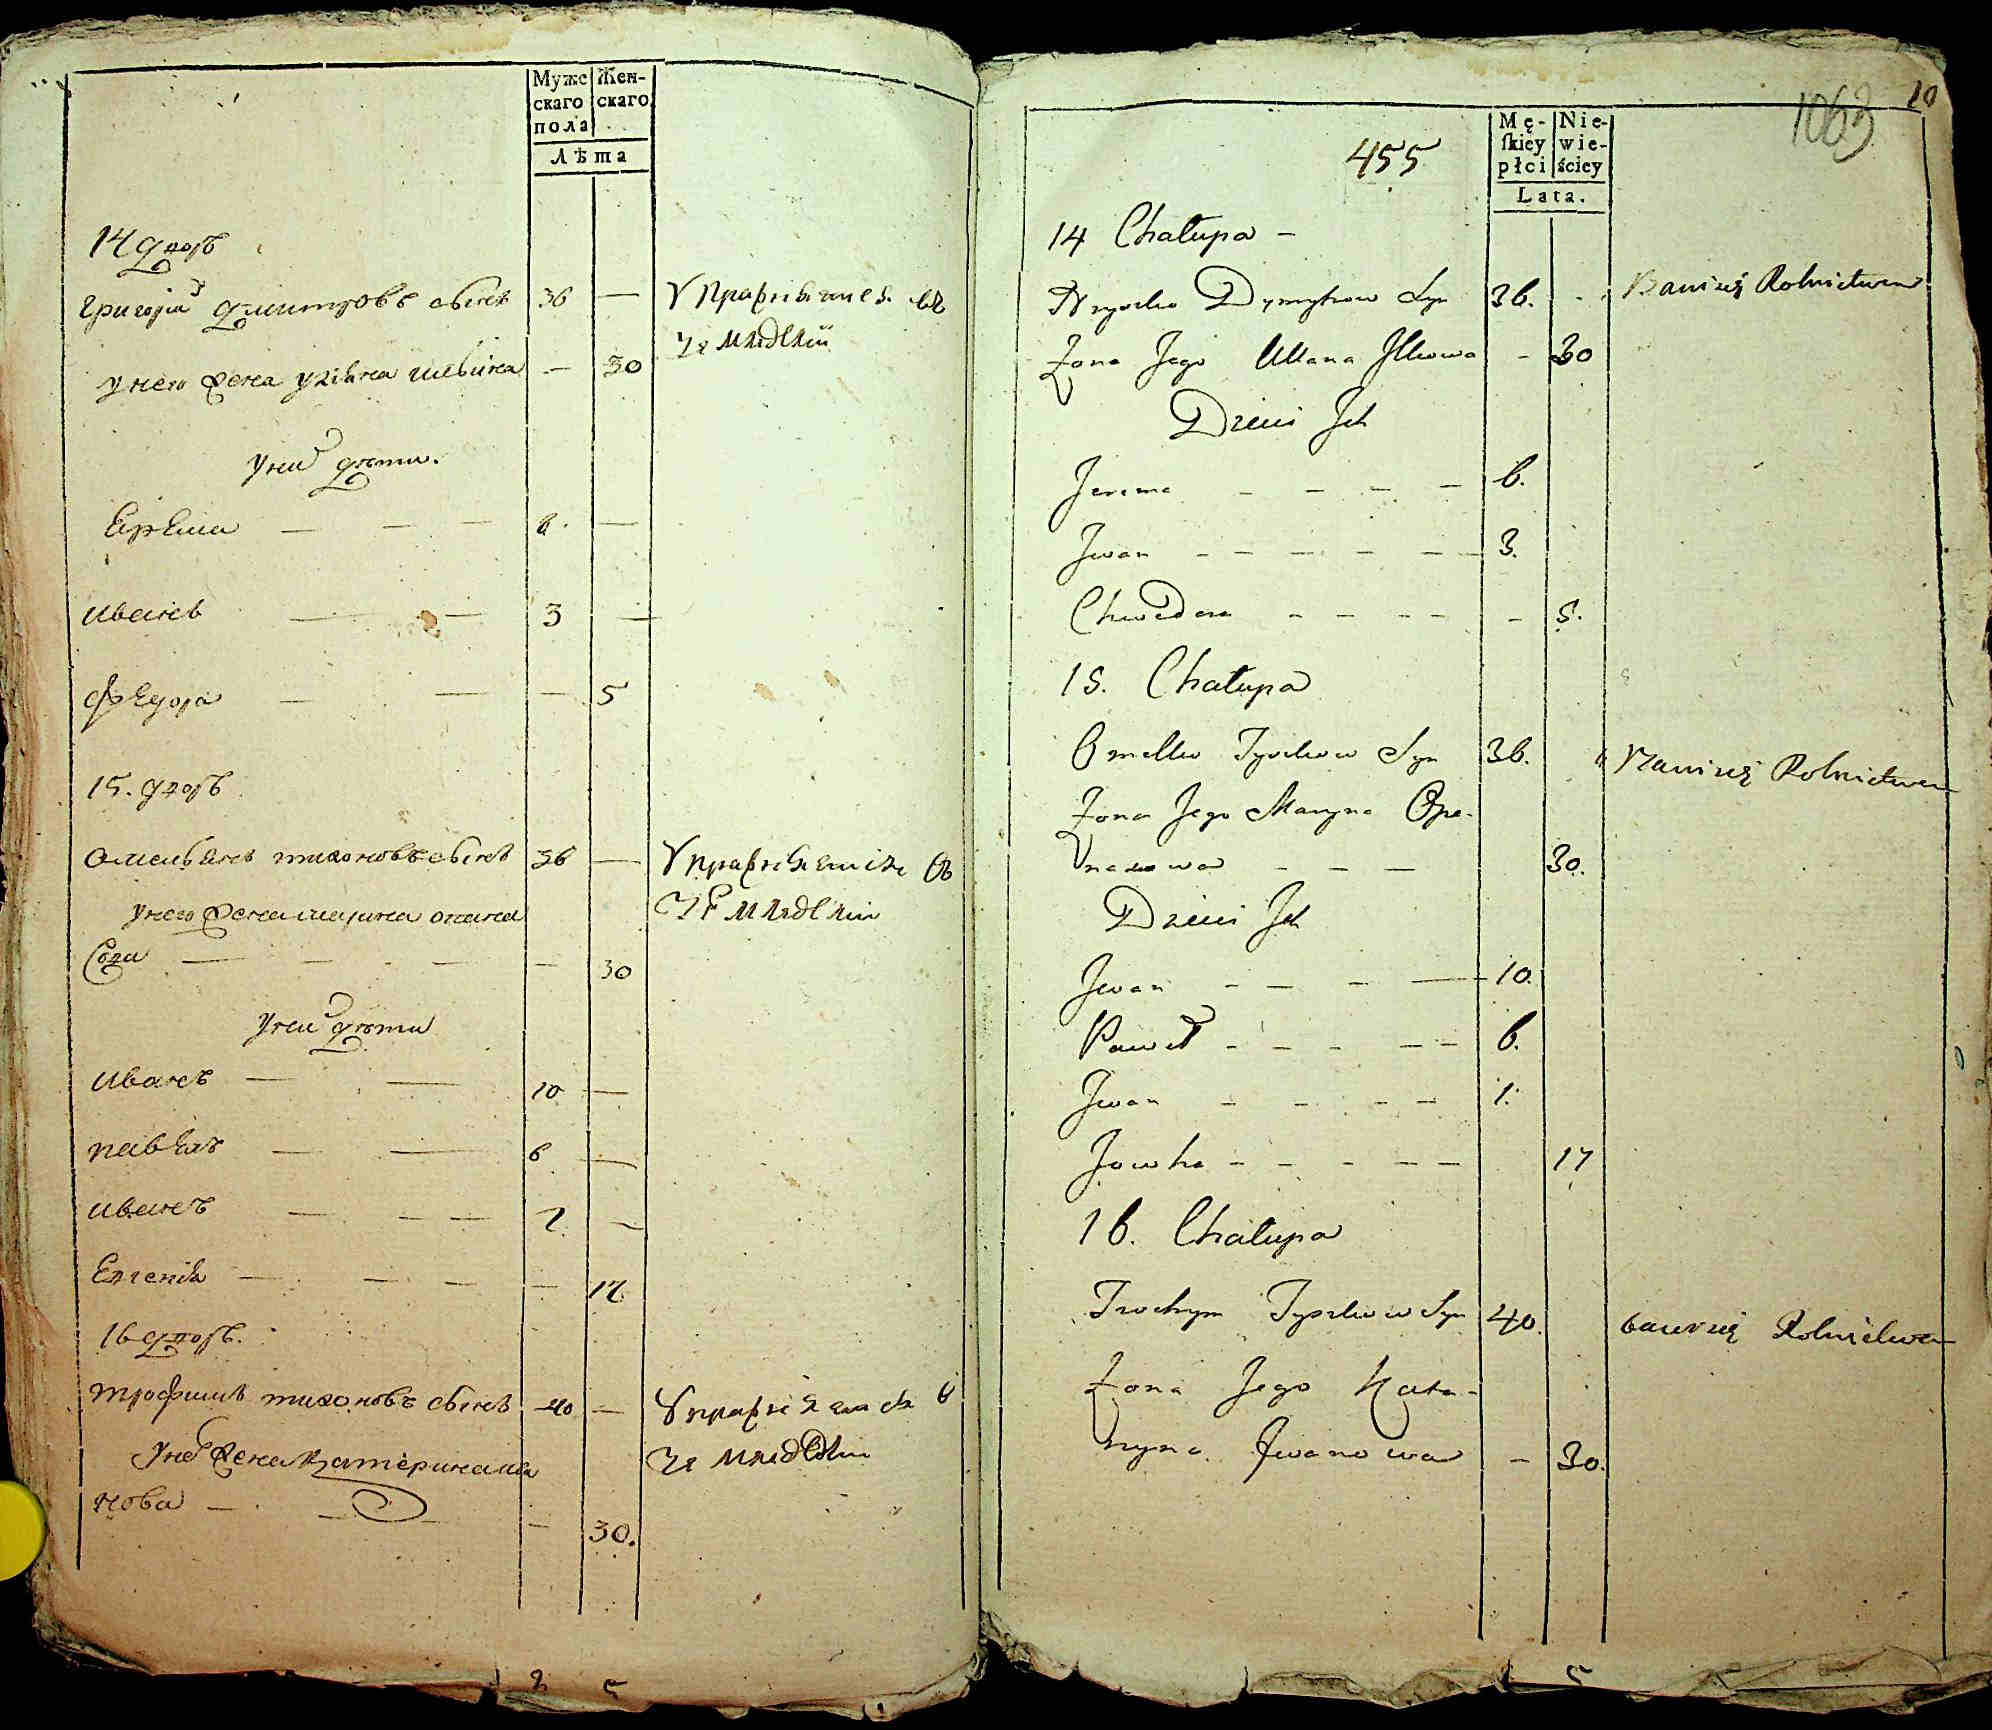 Муже
скаго
пола
Жен-
скаго
Лѣта
14 дворъ
Григорій Дмитровъ сынъ 36 —
Упражняется въ
земледѣліи
у него жена Уліана Ильина — 30
у них дѣти.
Ерема — — — 6. —
Иванъ — — 3 —
Федора — — — 5
15. дворъ
Омельянъ Тихоновъ сынъ 36 —
Упражняется въ
земледѣліи
у него жена Марина Опана
сова — — — — — 30
у них дѣти
Иванъ — — 10 —
Павелъ — — 6 —
Иванъ — — — —
Евгенія — — — — 17.
16 дворъ.
Трофимъ Тихоновъ сынъ 40 —
Упражняется в
земледѣліи
у нево жена Катерина Ива
нова — — — — 30.
2 5
1063
10
455
Mę-
skiey
płci
Nie-
wie-
ściey
Lata.
14 Chałupa –
Hryćko Dymytrow Syn 36. Bawi się Rolnictwem
Żona Jego Ullana Jlkowa – 30
Dzieci Jch
Jerema – – – – 6.
Jwan – – – – – – 3.
Chwedora – – – – – 5.
15. Chałupa
Omelko Tyszkow Syn 36. Bawi się Rolnictwem
Żona Jego Maryna Opa-
nasowa – – – 30.
Dzieci Jch
Jwan – – – — 10.
Paweł – – – – – 6.
Jwan – – – – 1.
Jowha – – – – – 17
16. Chałupa
Trochym Tyszkow Syn 40. bawi się Rolnictwem
Żona Jego Kata-
ryna Jwanowa – 30.
5